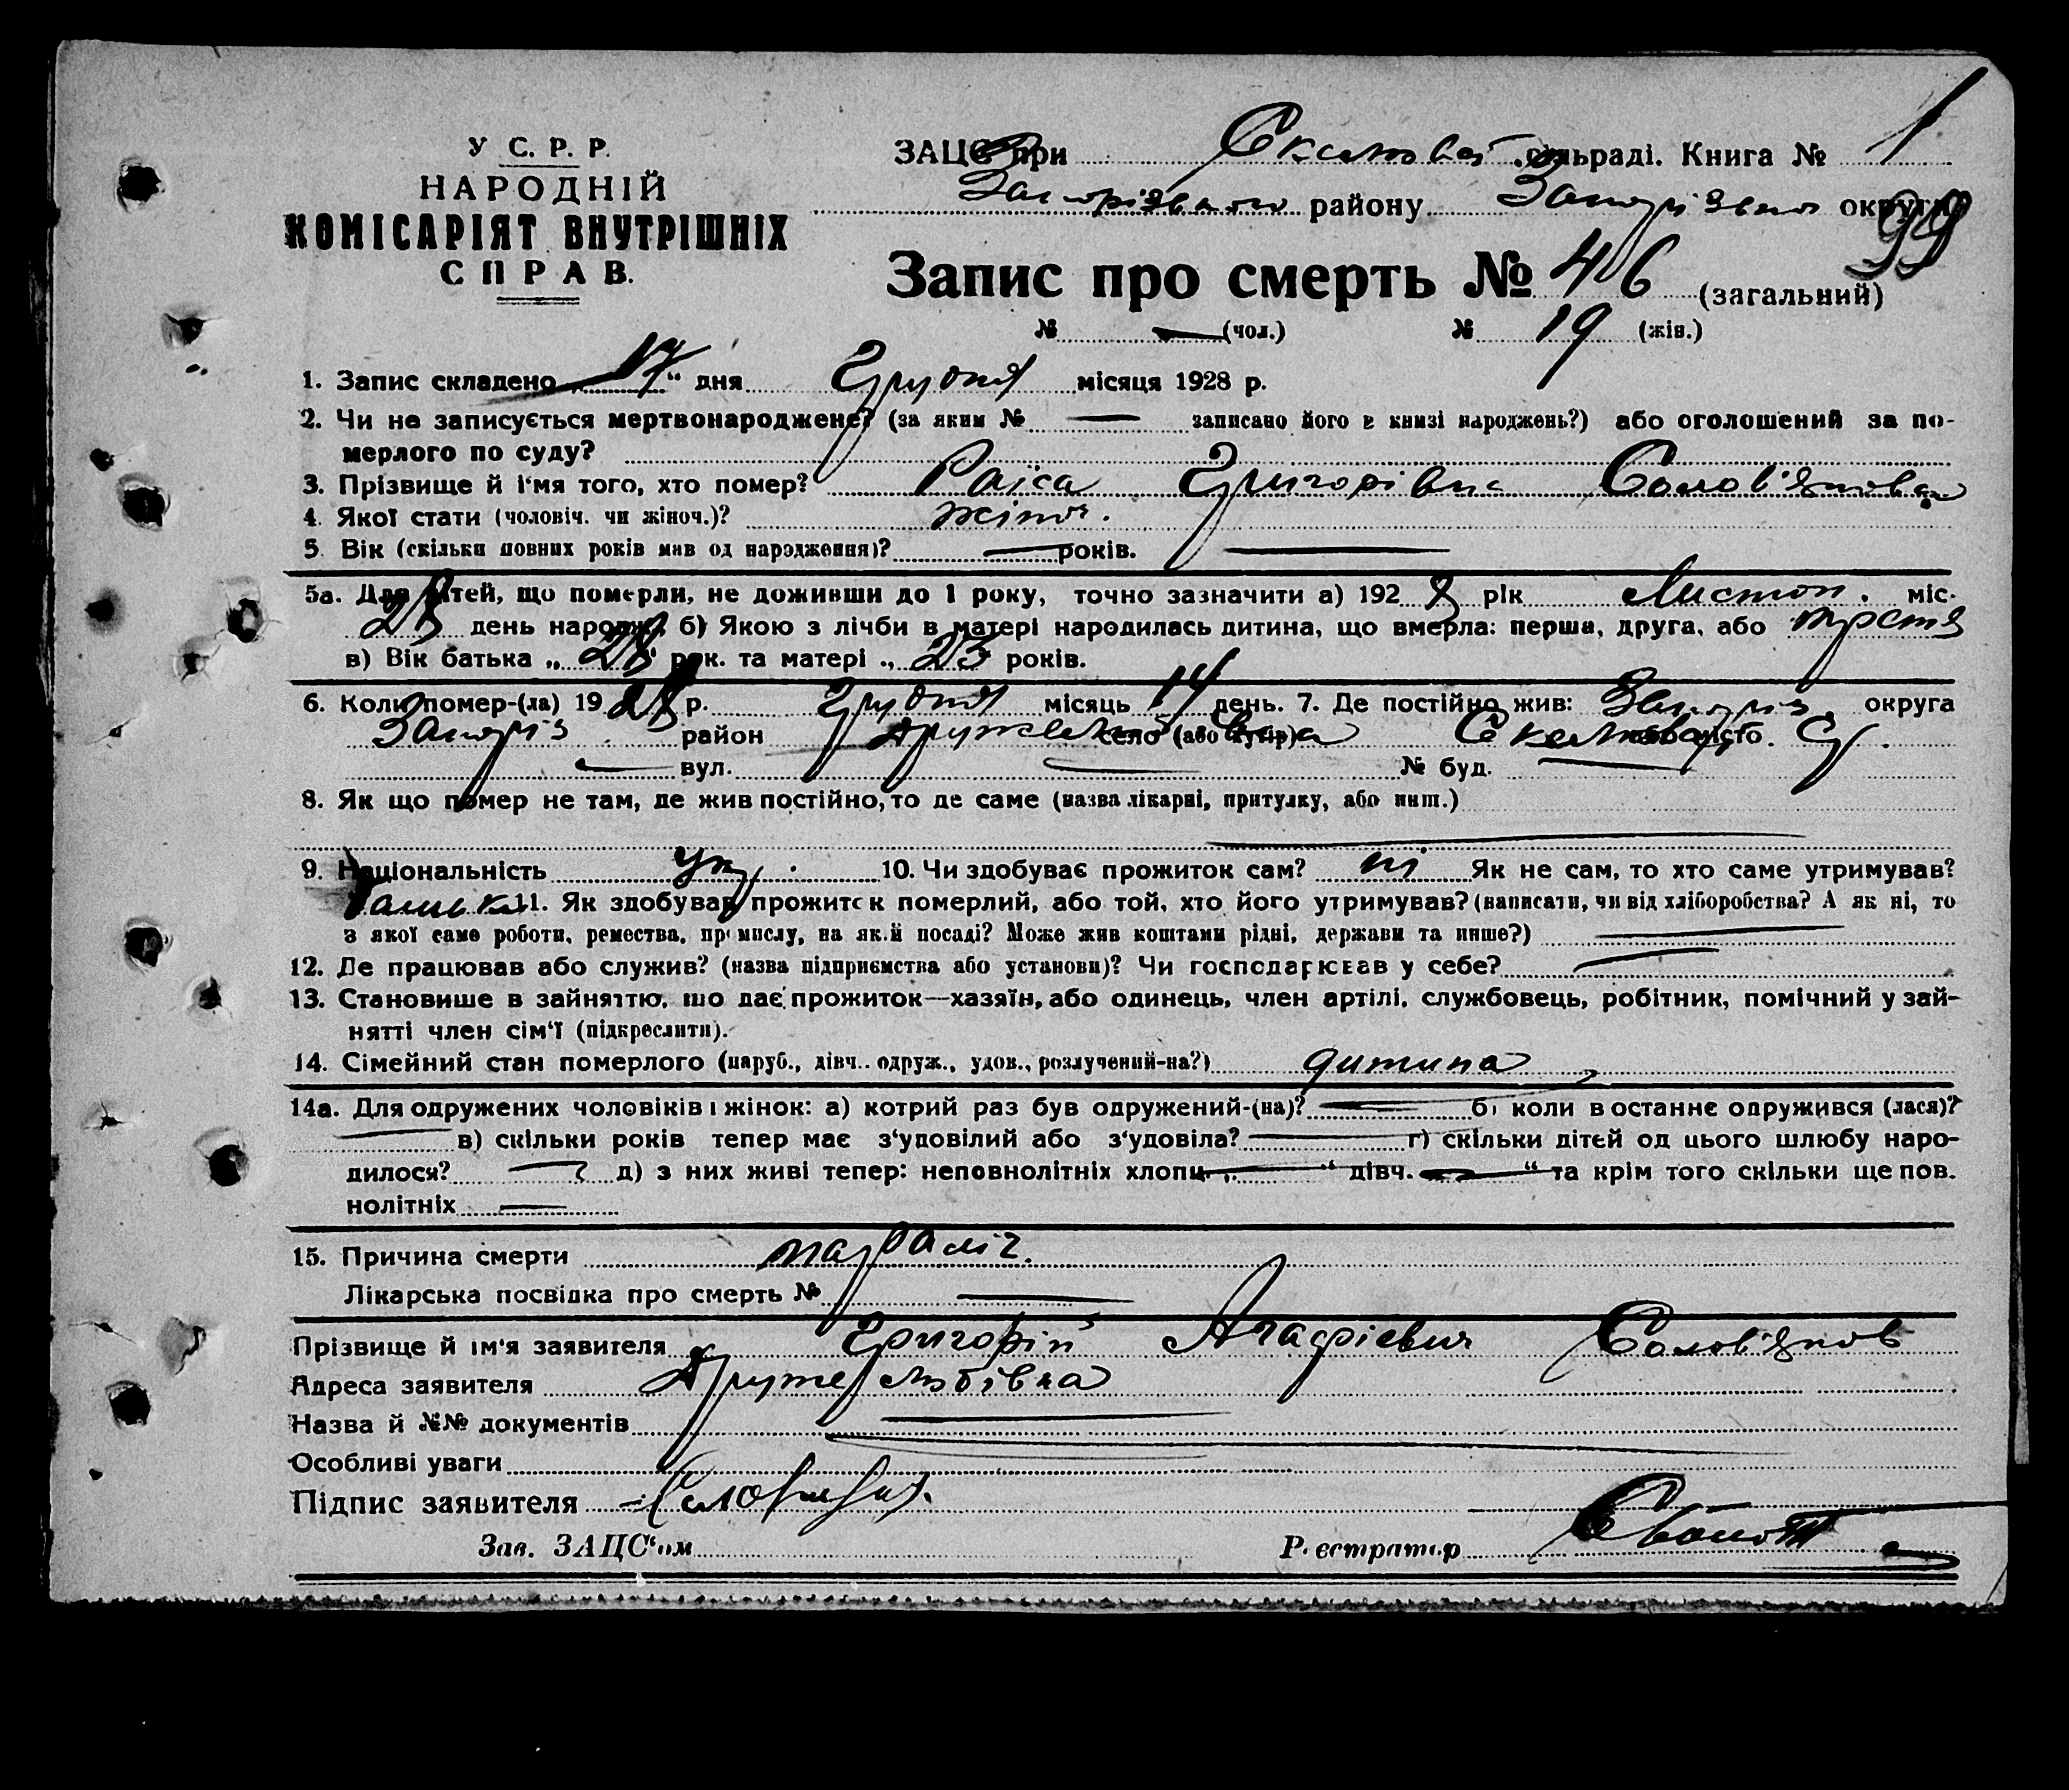 У С. Р. Р.
НАРОДНІЙ
КОМІСАРІЯТ ВНУТРІШНІХ
СПРАВ.
ЗАЦС при сільраді. Книга № 1
району округи
99
Запис про смерть № 46 (загальний)
№ — (чол.) № 19 (жін.)
1. Запис складено „17“ дня Грудня місяця 1928 р.
2. Чи не записується мертвонароджене? (за яким № — записано його в книзі народжень?) або оголошений за по-
мерлого по суду?
3. Прізвище й і'мя того, хто помер? Раіса Григорівна Солов'янова
4. Якої стати (чоловіч. чи жіноч.)? жіноч.
5. Вік (скільки повних років мав од народження)? — років. —
5а. Для дітей, що померли, не доживши до 1 року, точно зазначити а) 1928 рік Листоп. міс.
28 день народж. б) Якою з лічби в матері народилась дитина, що вмерла: перша, друга, або третя
в) Вік батька „28“ рок. та матері „25 років.
6. Коли помер-(ла) 1928 р. Грудня місяць 14 день. 7. Де постійно жив: Запоріз. округа
Запоріз. район село (або хутір) або місто.
— вул. — № буд. —
8. Як що помер не там, де жив постійно, то де саме (назва лікарні, притулку, або инш.)
—
9. Національність укр. 10. Чи здобуває прожиток сам? ні Як не сам, то хто саме утримував?
Батько 11. Як здобував прожиток померлий, або той, хто його утримував? (написати, чи від хліборобства? А як ні, то
з якої саме роботи, ремества, промислу, на якій посаді? Може жив коштами рідні, держави та инше?) —
12. Де працював або служив? (назва підприємства або установи)? Чи господарював у себе? —
13. Становище в зайняттю, що дає прожиток—хазяїн, або одинець, член артілі, службовець, робітник, помічний у зай-
нятті член сім'ї (підкреслити).
14. Сімейний стан померлого (паруб., дівч., одруж., удов., розлучений-на?) дитина
14а. Для одружених чоловіків і жінок: а) котрий раз був одружений-(на)? — б) коли востаннє одружився (лася)?
— в) скільки років тепер має з'удовілий або з'удовіла? — г) скільки дітей од цього шлюбу наро-
дилося? — д) з них живі тепер: неповнолітніх хлопц. „—“ дівч. „—“ та крім того скільки ще пов.
нолітніх —
15. Причина смерти параліч.
Лікарська посвідка про смерть № —
Прізвище й ім'я заявителя Григорій Агафієвич Солов'янов
Адреса заявителя Дружелюбівка
Назва й №№ документів —
Особливі уваги
Підпис заявителя
Зав. ЗАЦС'ом Реєстратор